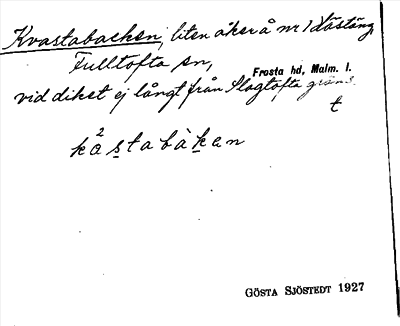 Kvastabacken, liten åker å nr 1 Låstäng,
Fulltofta sn,
Frosta hd, Malm. l.
vid diket ej långt från Slagtofta gräns.
t
2
kåstabàkan
GÖSTA SJÖSTEDT 1927